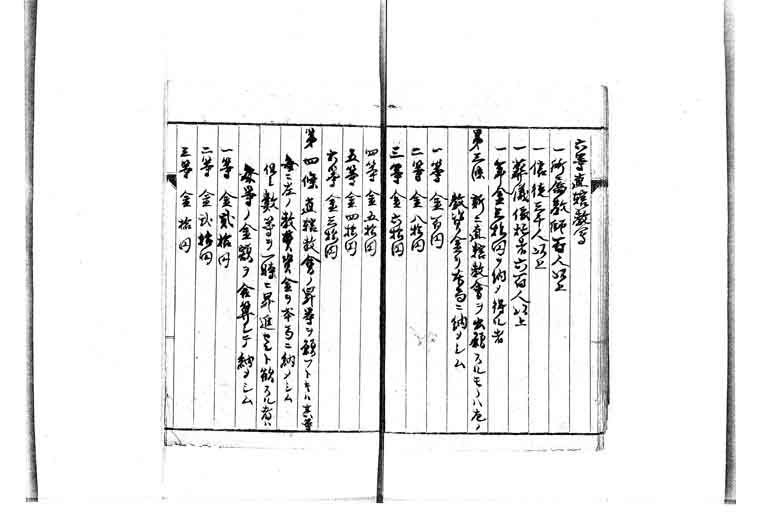 六等直轄教會
一所屬教師百人以上
一信徒三千人以上
一葬儀依托者六百人以上
一一年金三拾円ヲ納メ得ル者
第三條 新ニ直轄教會ヲ出願スルモノハ左ノ
教費金ヲ本局ニ納メシム
一等 金百円
二等 金八拾円
三等 金六拾円
四等 金五拾円
五等 金四拾円
六等 金三拾円
第四條 直轄教會ノ昇等ヲ願フトキハ其等
每ニ左ノ教費資金ヲ本局ニ納メシム
但シ數等ヲ一時ニ昇進セント欲スル者ハ
每等ノ金額ヲ合算シテ納メシム
一等 金貳拾円
二等 金貳拾円
三等 金拾円